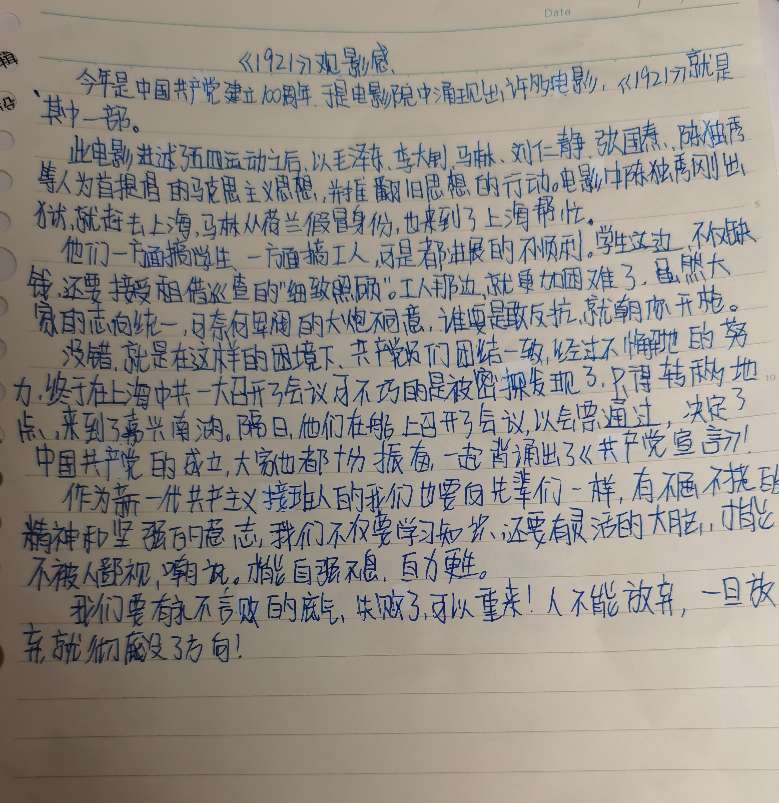 Date
《1921》观影感
今年是中国共产党建立100周年,于是电影院中涌现出许多电影,《1921》就是
其中一部。
此电影讲述了五四运动之后,以毛泽东、李大钊、马林、刘仁静、张国焘、陈独秀
等人为首提倡的马克思主义思想,并推翻旧思想的行动。电影中陈独秀刚出
狱,就赶去上海,马林从荷兰假冒身份,也来到了上海帮忙。
他们一方面搞学生、一方面搞工人,可是都进展的不顺利。学生这边,不仅缺
钱,还要接受租借巡查的"细致照顾"。工人那边,就更加困难了,虽然大
家的志向统一,可奈何军阀的大炮不同意,谁要是敢反抗,就朝你开炮。
没错,就是在这样的困境下,共产党员们团结一致,经过不懈地的努
力,终于在上海中共一大召开了会议可不巧的是被密探发现了,只得转移地
点,来到了嘉兴南湖。隔日,他们在船上召开了会议,以全票通过,决定了
中国共产党的成立,大家也都十分振奋,一起背诵出了《共产党宣言》!
作为新一代共产主义接班人的我们也要向先辈们一样,有不屈不挠的
精神和坚强的意志,我们不仅要学习知识,还要有灵活的大脑,才能
不被人鄙视,嘲讽。才能自强不息,自力更生。
我们要有永不言败的底气,失败了,可以重来!人不能放弃,一旦放
弃就彻底没了方向!